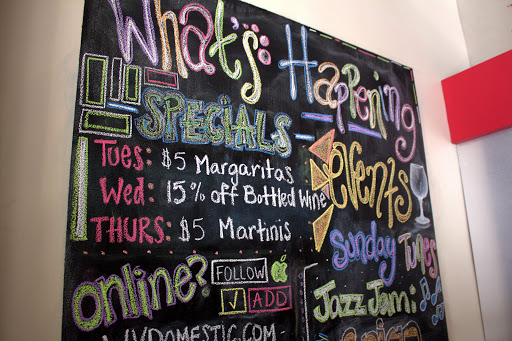 What's Happening
SPECIALS
TUES: $5 Margaritas
Wed: 15% off Bottled Wine
THURS: $5 Martinis
online?
FOLLOW
ADD
events
Sunday Tunes
Jazz Jam: